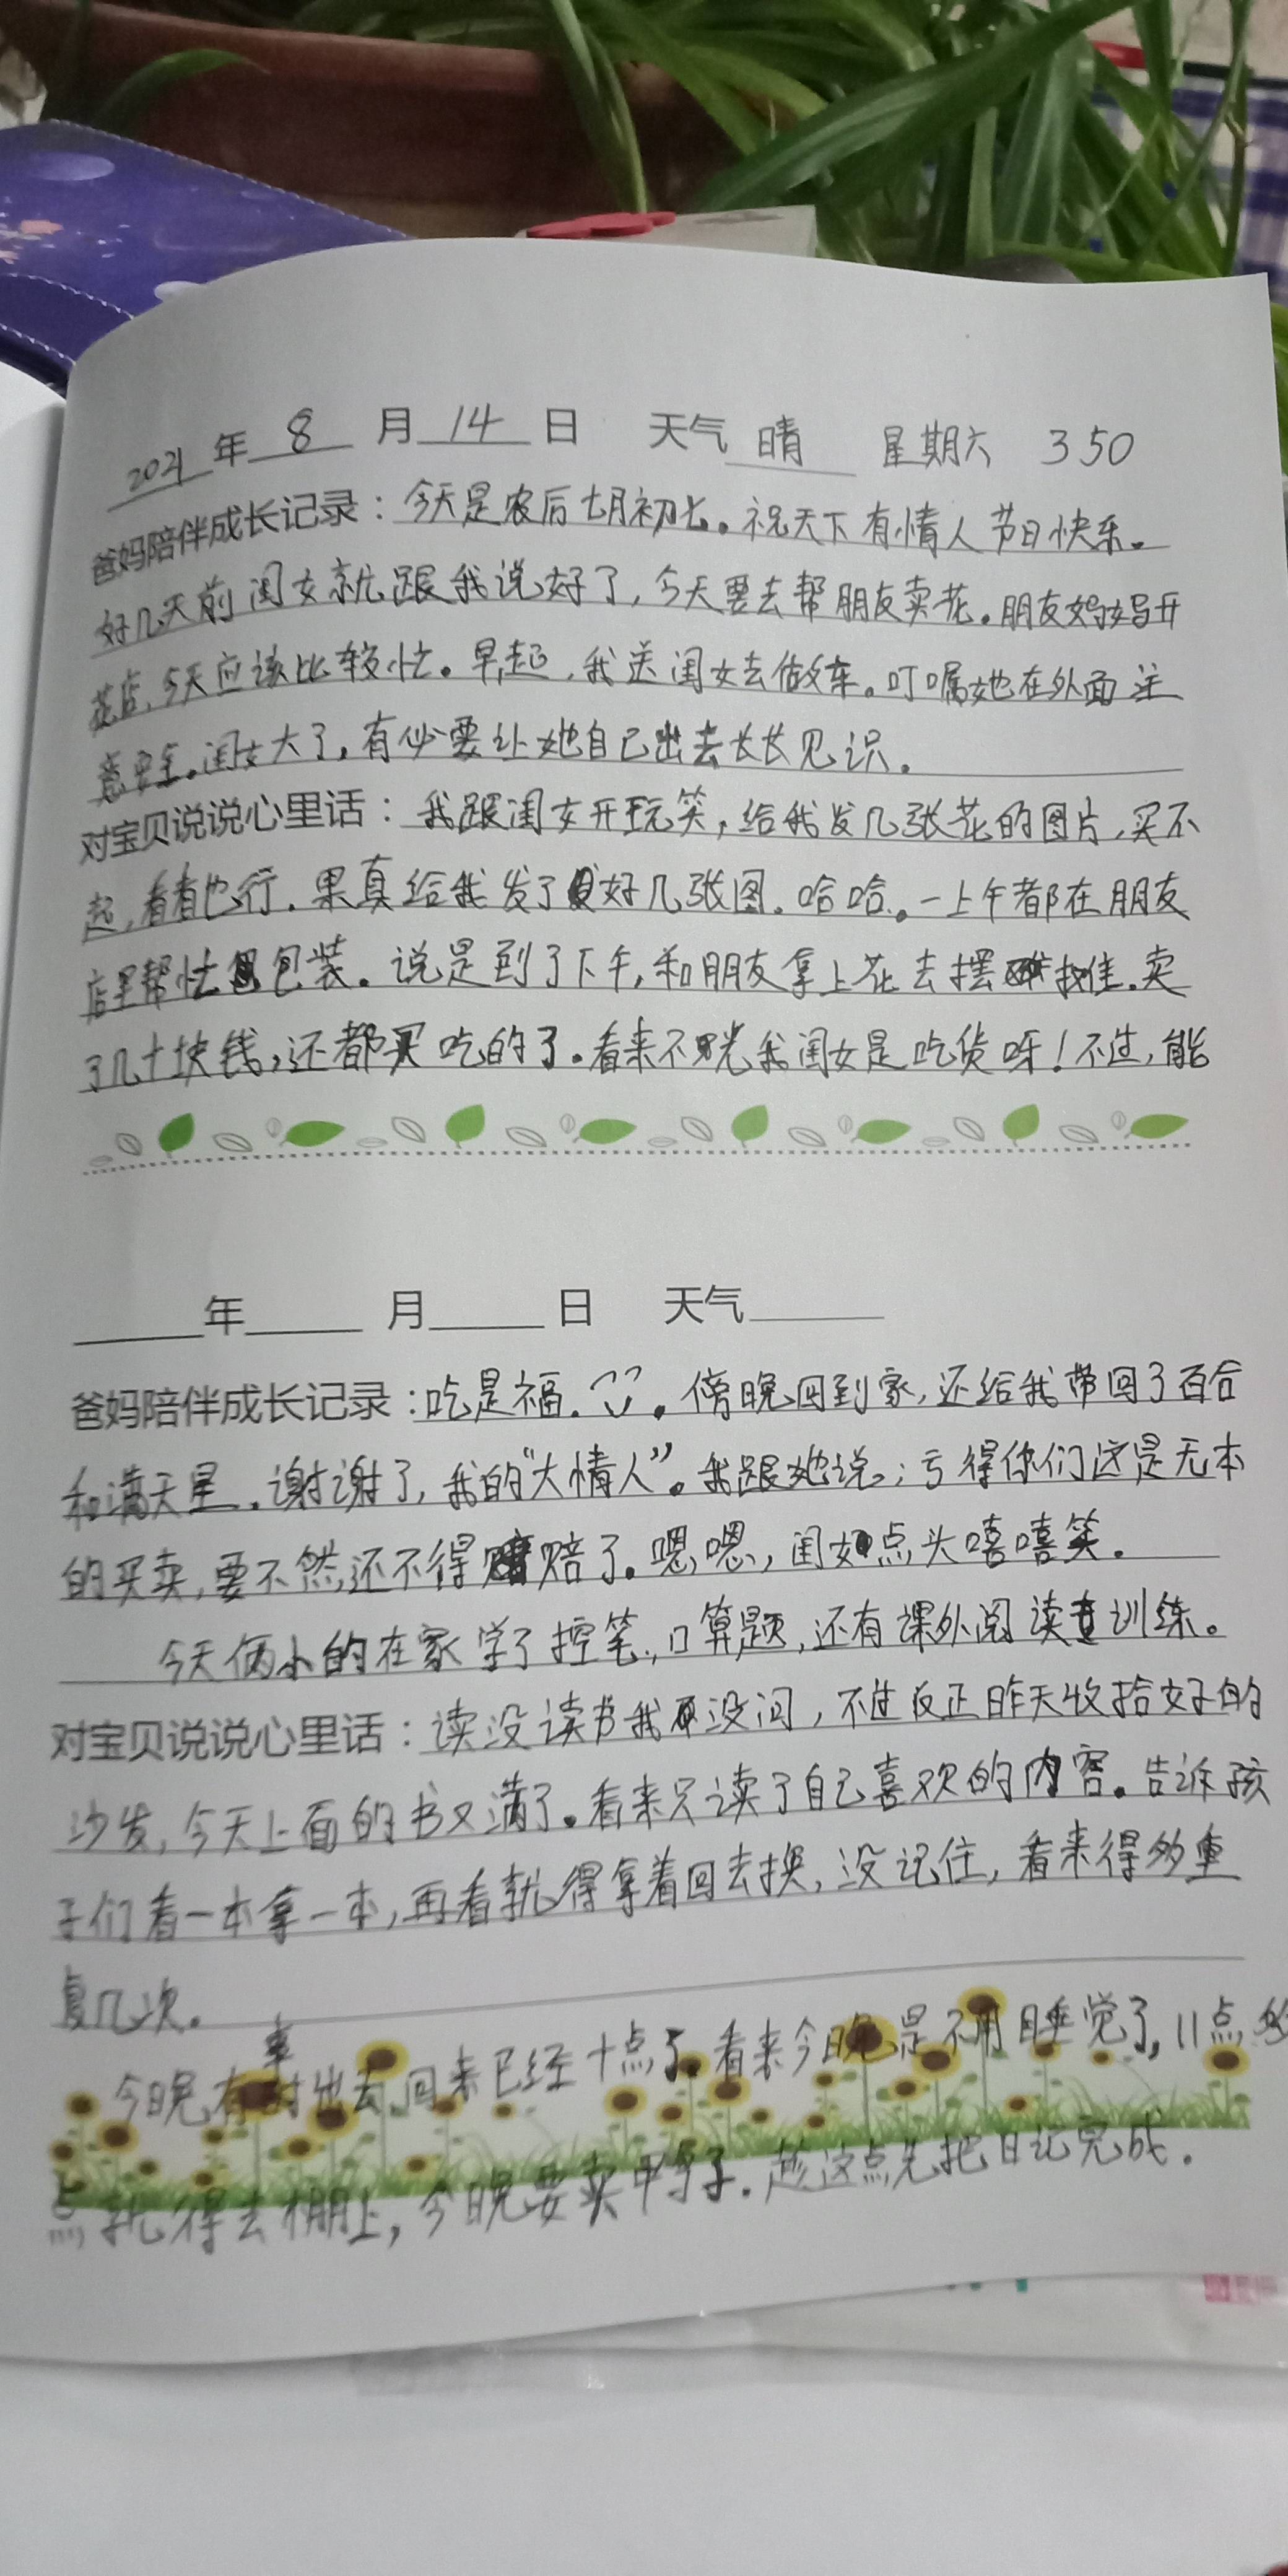 2021年 8 月 14 日 天气 晴 星期六 350
爸妈陪伴成长记录：今天是农后七月初七。祝天下有情人节日快乐。
好几天前闺女就跟我说好了，今天要去帮朋友卖花。朋友妈妈开
花店，今天应该比较忙。早起，我送闺女去做车。叮嘱她在外面注
意安全。闺女大了，有必要让她自己出去长长见识。
对宝贝说说心里话：我跟闺女开玩笑，给我发几张花的图片，买不
起，看看也行。果真给我发了好几张图。哈哈。一上午都在朋友
店里帮忙包装。说是到了下午，和朋友拿上花去摆摊。卖
了几十块钱，还都买吃的了。看来不光我闺女是吃货呀！不过，能
年 月 日 天气
爸妈陪伴成长记录：吃是福。傍晚回到家，还给我带回了百合
和满天星。谢谢了，我的“大情人”。我跟她说：亏得你们这是无本
的买卖，要不然还不得赔了。嗯嗯，闺女点头嘻嘻笑。
今天俩小的在家学了控笔，口算题，还有课外阅读训练。
对宝贝说说心里话：读没读书我没问，不过反正昨天收拾好的
沙发，今天上面的书又满了。看来只读了自己喜欢的内容。告诉孩
子们看一本拿一本，再看就得拿着回去换，没记住，看来得多重
复几次。
今晚有事出去，回来已经十点了。看来今晚是不用睡觉了，11点
点就得去棚上，今晚要卖甲鱼子。趁这点先把日记完成。